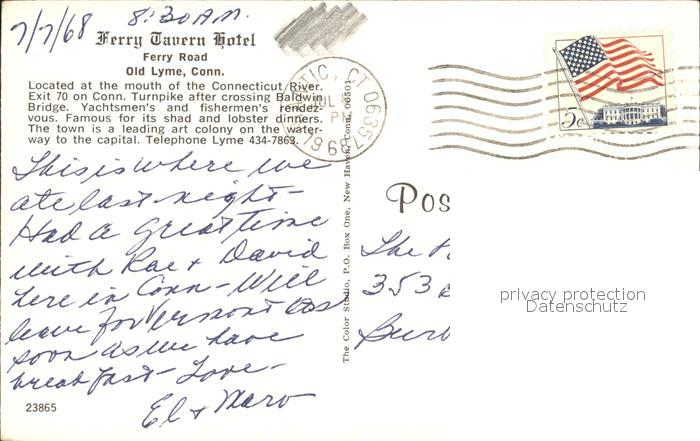 7/7/68 8:30 AM.
Ferry Tavern Hotel
Ferry Road
Old Lyme, Conn.
Located at the mouth of the Connecticut River.
Exit 70 on Conn. Turnpike after crossing Baldwin
Bridge. Yachtsmen's and fishermen's rendez-
vous. Famous for its shad and lobster dinners.
The town is a leading art colony on the water-
way to the capital. Telephone Lyme 434-7863.
This is where we
ate last night -
Had a great time
with Rae + David
here in Conn - Will
leave for Vermont as
soon as we have
breakfast - Love -
El + Marv
23865
The Color Studio, P.O. Box One, New Haven, Conn. 06501
TIC, CT 06357
JUL 8
PM
1968
5c
Pos
The
353
Burb
privacy protection
Datenschutz